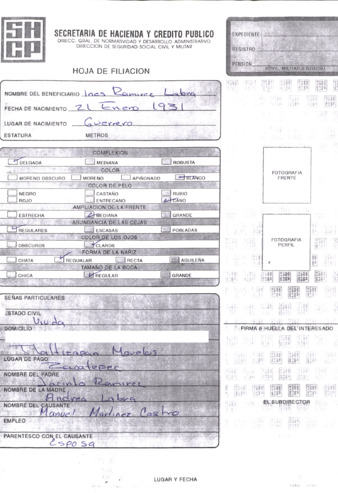 SHCP
SECRETARIA DE HACIENDA Y CREDITO PUBLICO
DIRECC. GRAL. DE NORMATIVIDAD Y DESARROLLO ADMINISTRATIVO
DIRECCION DE SEGURIDAD SOCIAL CIVIL Y MILITAR
EXPEDIENTE
REGISTRO
PENSION
HOJA DE FILIACION
NOMBRE DEL BENEFICIARIO Ines Ramirez Labra
FECHA DE NACIMIENTO 21 Enero 1931
LUGAR DE NACIMIENTO Guerrero
ESTATURA METROS
COMPLEXION
DELGADA MEDIANA ROBUSTA
COLOR
MORENO OBSCURO MORENO APIÑONADO BLANCO
COLOR DE PELO
NEGRO CASTAÑO RUBIO
ROJO ENTRECANO CANO
AMPLIACION DE LA FRENTE
ESTRECHA MEDIANA GRANDE
ABUNDANCIA DE LAS CEJAS
REGULARES ESCASAS POBLADAS
COLOR DE LOS OJOS
OBSCUROS CLAROS
FORMA DE LA NARIZ
CHATA REGUALAR RECTA AGUILEÑA
TAMAÑO DE LA BOCA
CHICA REGULAR GRANDE
FOTOGRAFIA
FRENTE
FOTOGRAFIA
PERFIL
SEÑAS PARTICULARES
ESTADO CIVIL
Viuda
DOMICILIO
Morelos
LUGAR DE PAGO
Zacatepec
NOMBRE DEL PADRE
Jacinto Ramirez
NOMBRE DE LA MADRE
Andrea Labra
NOMBRE DEL CAUSANTE
Manuel Martinez Castro
EMPLEO
PARENTESCO CON EL CAUSANTE
Esposa
FIRMA O HUELLA DEL INTERESADO
EL SUBDIRECTOR
LUGAR Y FECHA